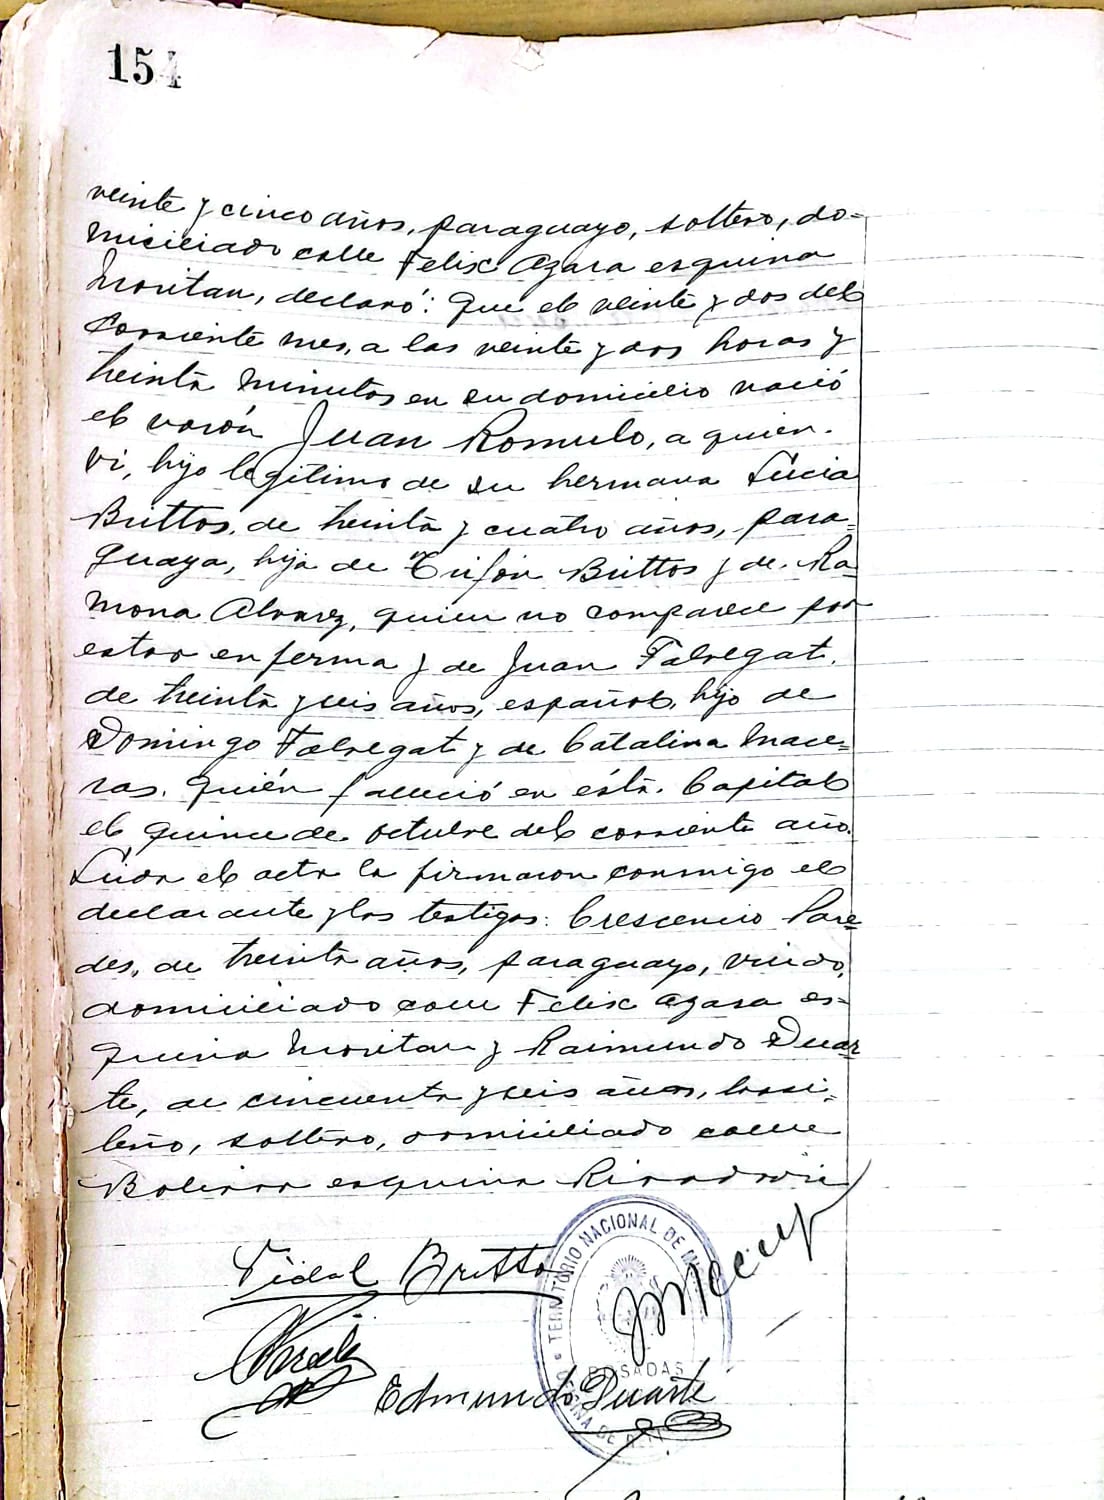 154
veinte y cinco años, paraguayo, soltero, do-
miciliado calle Felix Azara esquina
Moritan, declaró: Que el veinte y dos del
corriente mes, a las veinte y dos horas y
treinta minutos en su domicilio nació
el varón Juan Romulo, a quien
vi, hijo legitimo de su hermana Lucia
Brittos, de treinta y cuatro años, para-
guaya, hija de Trifón Brittos y de Ra-
mona Alvarez, quien no comparece por
estar enferma y de Juan Fabregat,
de treinta y seis años, español, hijo de
Domingo Fabregat y de Catalina Mace-
ras, quién falleció en ésta Capital
el quince de octubre del corriente año.
Leida el acta la firmaron conmigo el
declarante y los testigos: Crescencio Pare-
des, de treinta años, paraguayo, viudo,
domiciliado calle Felix Azara es-
quina Moritan y Raimundo Duar-
te, de cincuenta y seis años, brasi-
leño, soltero, domiciliado calle
Bolivar esquina Rivadavia
Vidal Britto
TERRITORIO NACIONAL DE
POSADAS
Edmundo Duarte